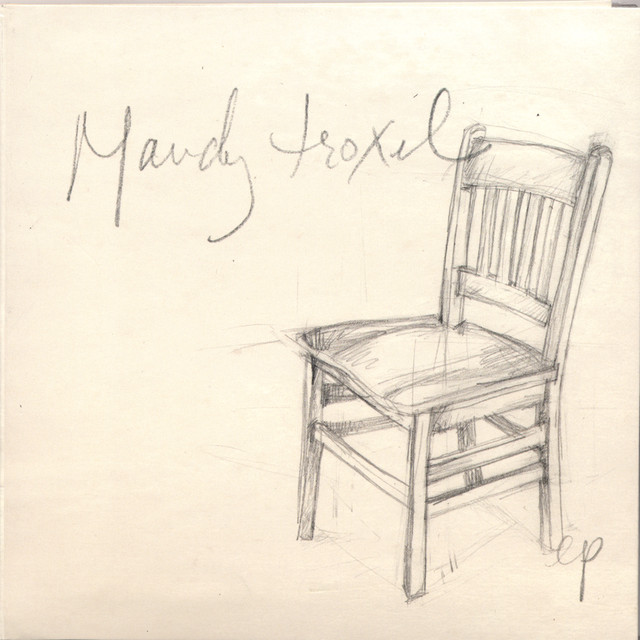 Mandy troxel
ep